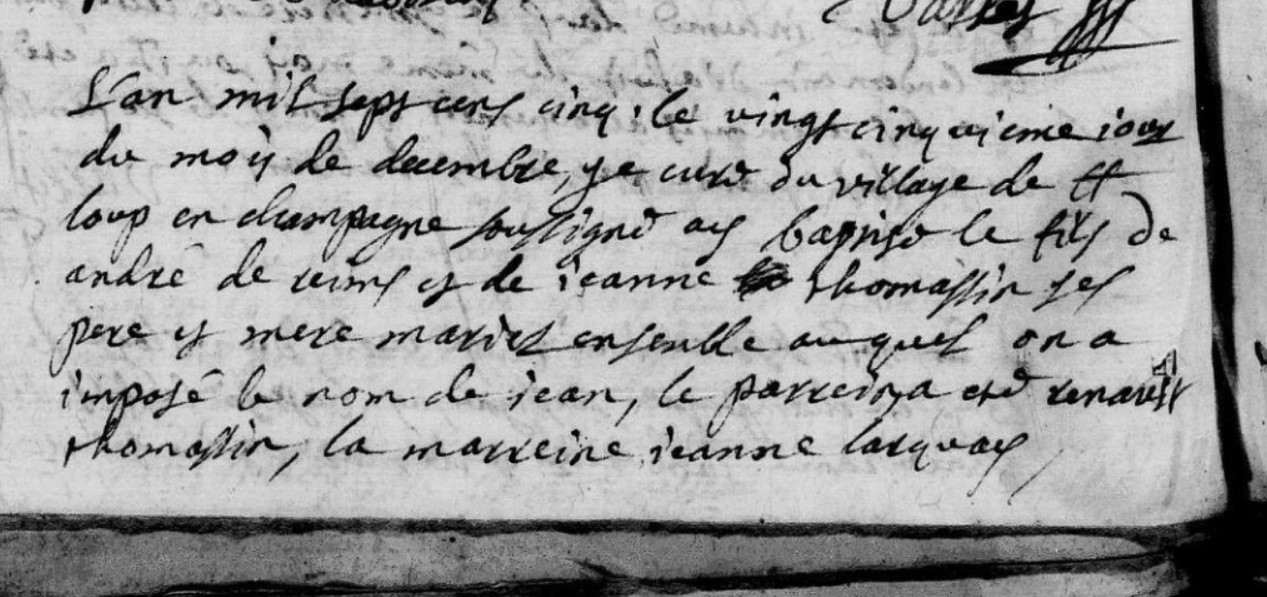 L'an mil sept cens cinq, le vingt cinquieme iour
du mois de decembre, je curé du village de St
loup en champagne soussigné ay baptisé le fils de
andré de reims et de ieanne thomassin ses
pere et mere mariez ensemble auquel on a
imposé le nom de iean, le parrein a eté renault
thomassin, la marreine ieanne